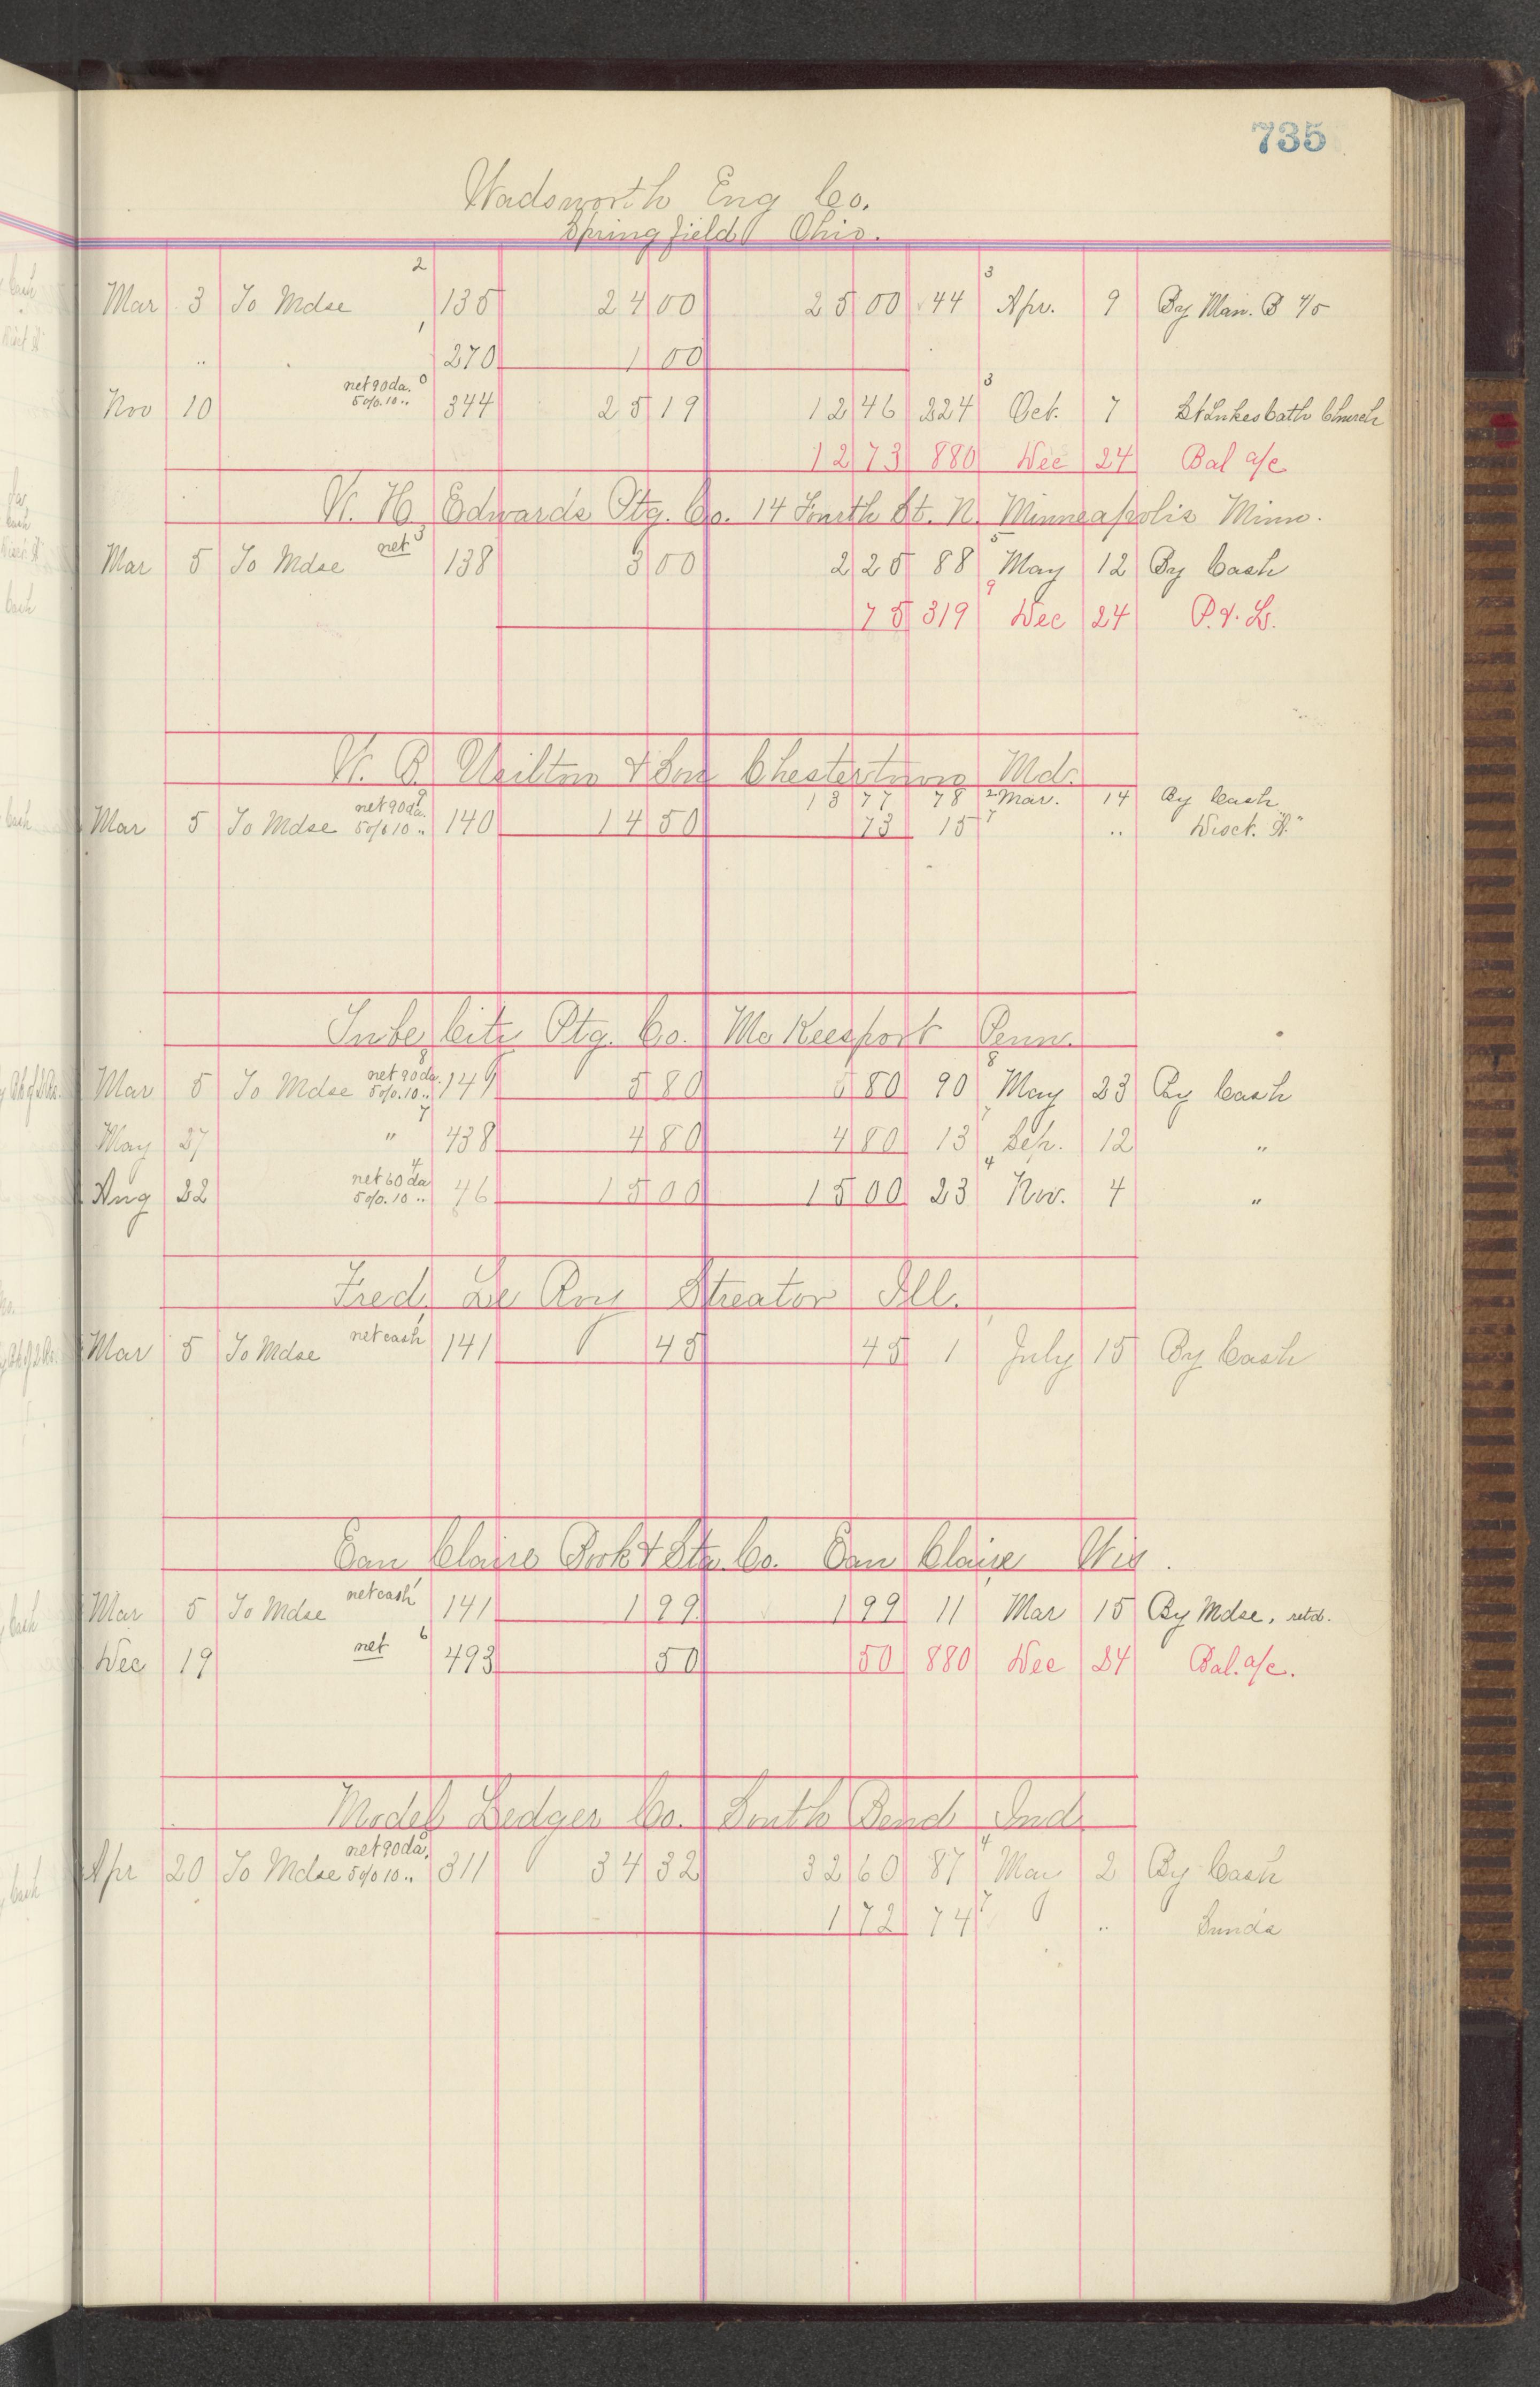 735
Wadsworth Eng Co.
Springfield Ohio.
Mar 3 To Mdse 2 135 24 00 25 00 44 3 Apr. 9 By Man. B 4/5
" 1 270 1 00
Nov 10 net 90 da. 5% 10 " 0 344 25 19 12 46 224 3 Oct. 7 St Lukes Cath Church
12 73 880 Dec 24 Bal a/c
W. H. Edwards Ptg. Co. 14 Fourth St. N. Minneapolis Minn.
Mar 5 To Mdse net 3 138 3 00 2 25 88 5 May 12 By Cash
75 319 9 Dec 24 P. & L.
W. B. Usilton & Son Chestertown Md.
13 77 78 2 Mar. 14 By Cash
Mar 5 To Mdse net 90 da. 5% 10 " 9 140 14 50 73 15 7 " Disct. "A"
Tube City Ptg. Co. McKeesport Penn.
Mar 5 To Mdse net 90 da. 5% 10 " 8 141 5 80 5 80 90 8 May 23 By Cash
May 27 " 7 438 4 80 4 80 13 Sep. 12 "
Aug 22 net 60 da 5% 10 " 4 46 15 00 15 00 23 4 Nov. 4 "
Fred Le Roy Streator Ill.
Mar 5 To Mdse net cash 141 45 45 1 July 15 By Cash
Eau Claire Book & Sta. Co. Eau Claire Wis.
Mar 5 To Mdse net cash 141 1 99 1 99 11 Mar 15 By Mdse, retd.
Dec 19 net 6 493 50 50 880 Dec 24 Bal. a/c.
Model Ledger Co. South Bend Ind.
Apr 20 To Mdse net 90 da. 5% 10 " 311 34 32 32 60 87 4 Mar 2 By Cash
1 72 74 7 " Sunds